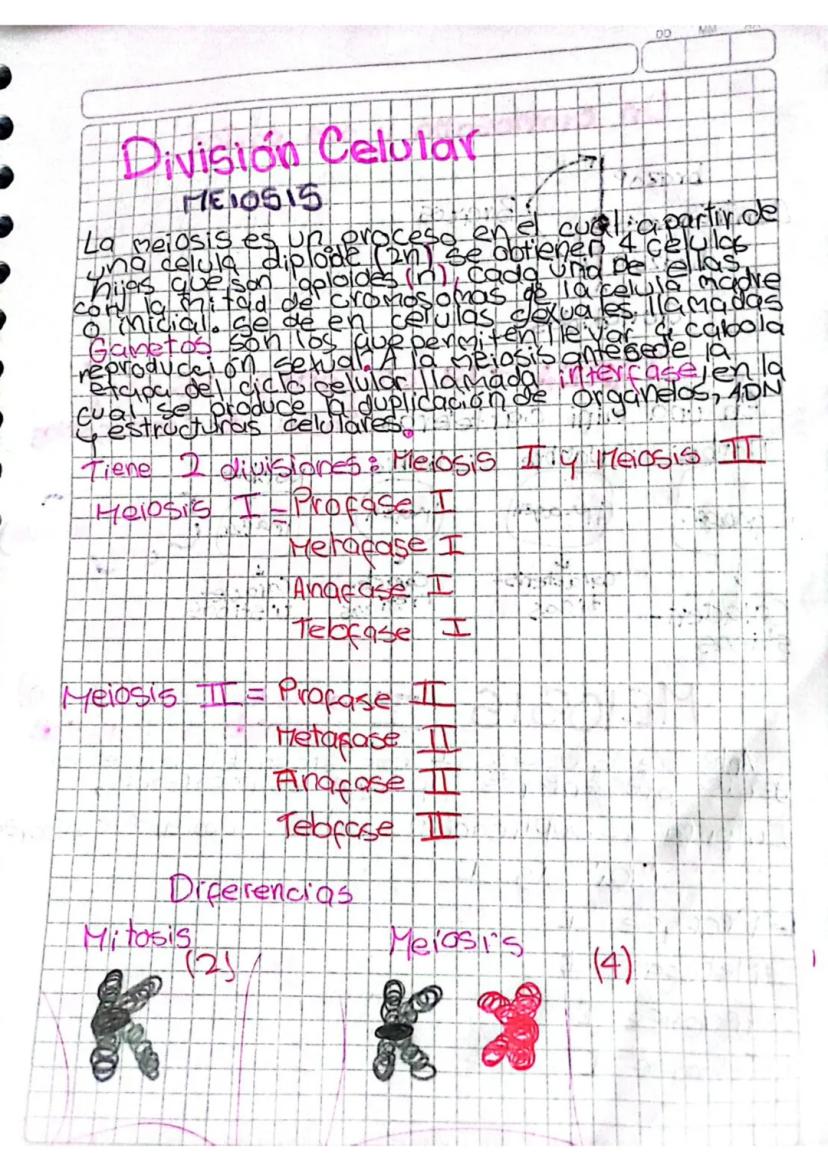 DD MM
División Celular
MEIOSIS
La meiosis es un proceso en el cual a partir de
una celula diplode (2n) se obtienen 4 celulas
hijas que son aploides (n), cada una de ellas
con la mitad de cromosomas de la celula madre
o inicial. se de en celulas sexuales llamadas
Gametos son los que permiten llevar a cabola
reproducción sexual. A la meiosis antesede la
etapa del ciclo celular llamada interfase, en la
cual se produce la duplicación de organelos, ADN
y estructuras celulares.
Tiene 2 divisiones: Meiosis I y Meiosis II
Meiosis I = Profase I
Metafase I
Anafase I
Telofase I
Meiosis II = Profase II
Metafase II
Anafase II
Telofase II
Diferencias
Mitosis Meiosis
(2) (4)